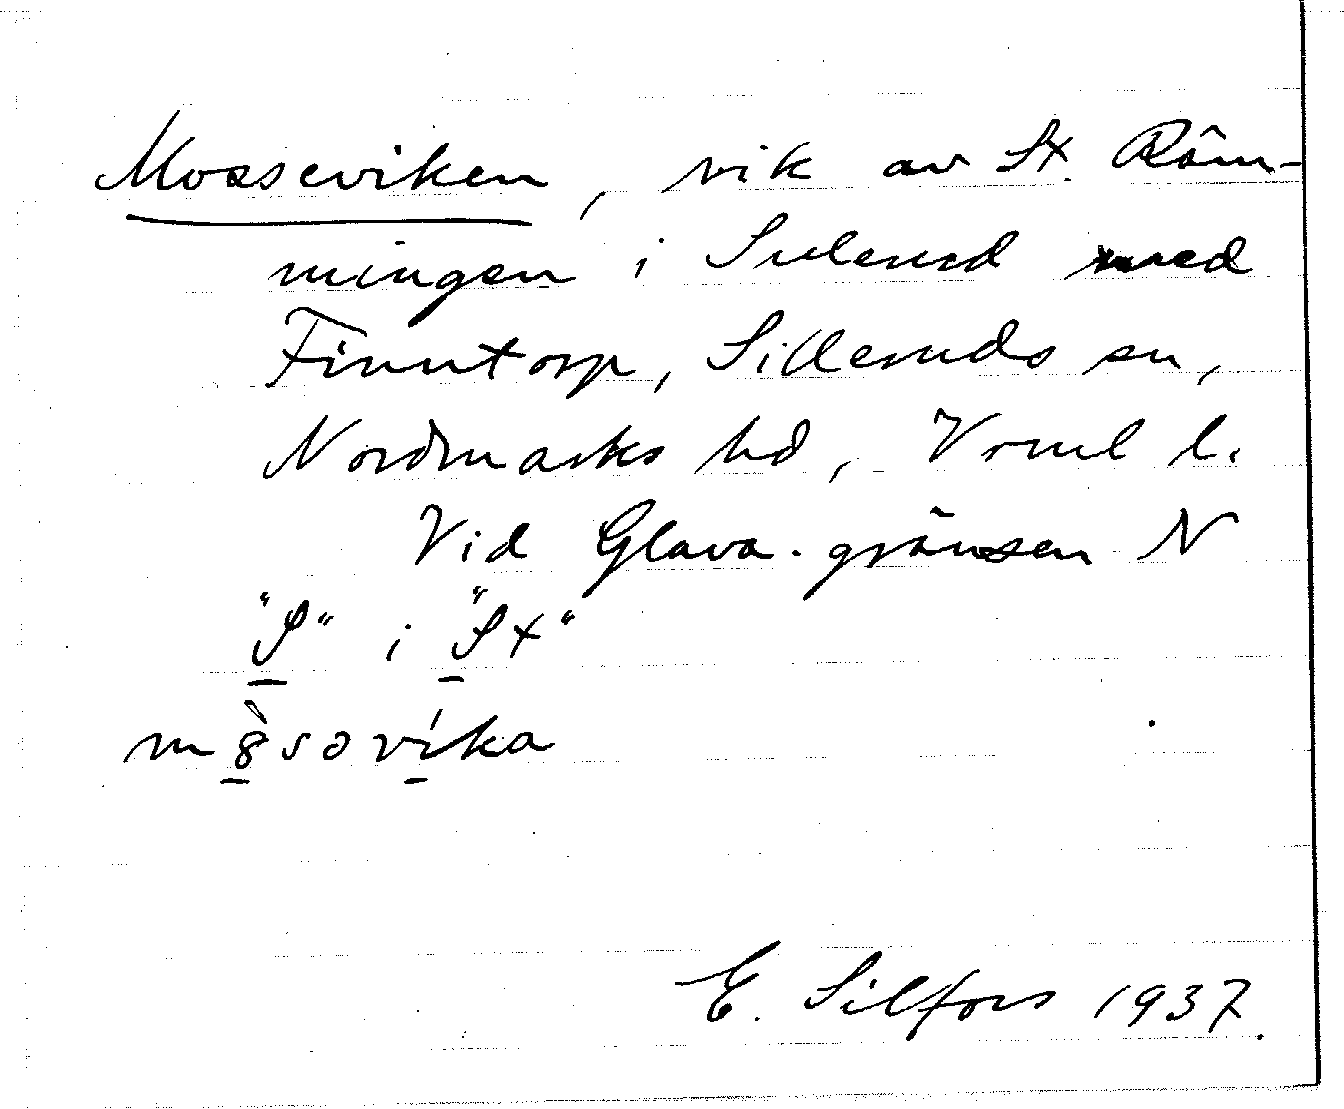 Mosseviken, vik av St. Röm-
mingen i Sulerud med
Finntorp, Silleruds sn,
Nordmarks hd, Vrml l.
Vid Glava-gränsen N
"S" i "St"
m8̀sovíka
E. Silfors 1937.